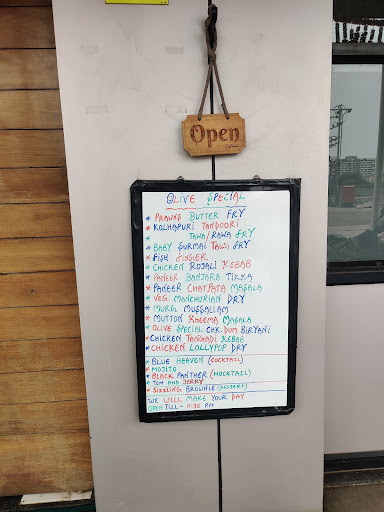 Open
OLIVE SPECIAL
* PRAWNS BUTTER FRY
* KOLHAPURI TANDOORI
* TAWA/RAWA FRY
* BABY SURMAI TAWA FRY
* FISH FINGER
* CHICKEN ROJALI KEBAB
* PANEER BANJARA TIKKA
* PANEER CHATPATA MASALA
* VEG. MANCHURIAN DRY
* MURG MUSSALLAM
* MUTTON KHEEMA MASALA
* OLIVE SPECIAL CHK. DUM BIRYANI
* CHICKEN TANGADI KEBAB
* CHICKEN LOLLYPOP DRY
* BLUE HEAVEN (COCKTAIL)
* MOJITO
* BLACK PANTHER (MOCKTAIL)
* TOM AND JERRY
* SIZZLING BROWNIE (DESSERT)
WE WILL MAKE YOUR DAY
OPEN TILL - 11:30 PM